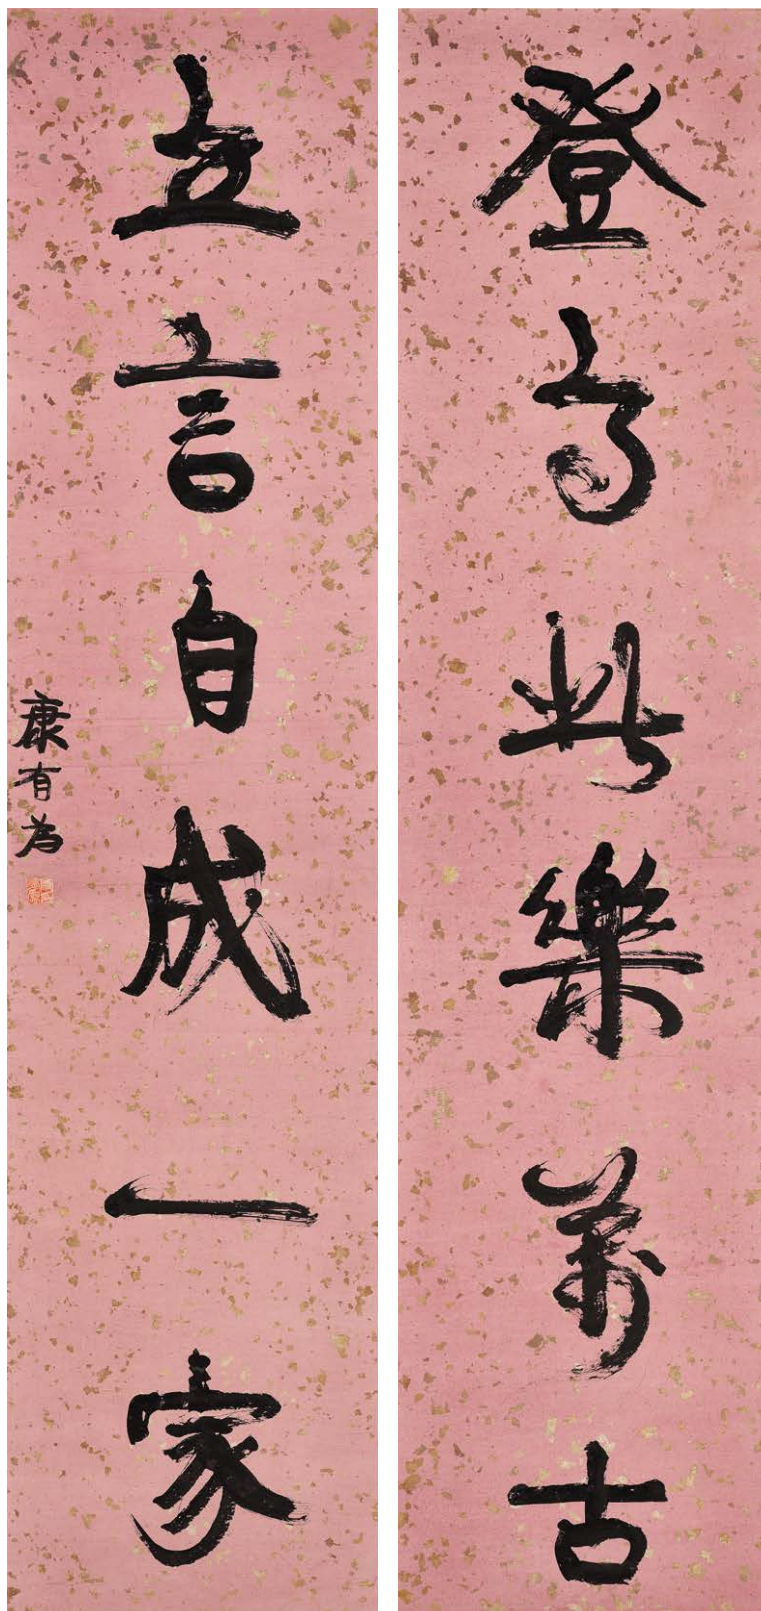 登高此樂萬古
立言自成一家
康有為